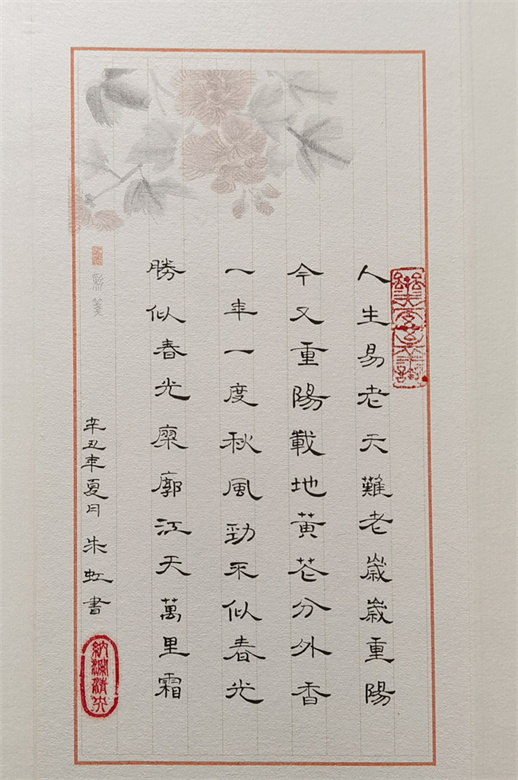 人生易老天難老歲歲重陽
今又重陽戰地黃花分外香
一年一度秋風勁不似春光
勝似春光寥廓江天萬里霜
辛丑年夏月朱虹書